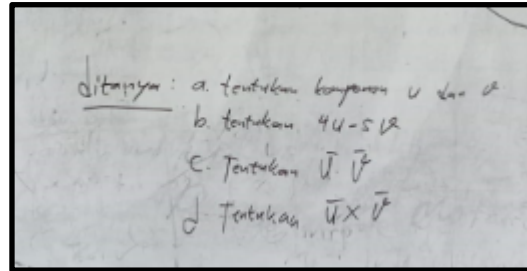 ditanya : a. tentukan komponen u dan v
b. tentukan 4u - 5v
c. Tentukan ū . v̄
d. Tentukan ū x v̄